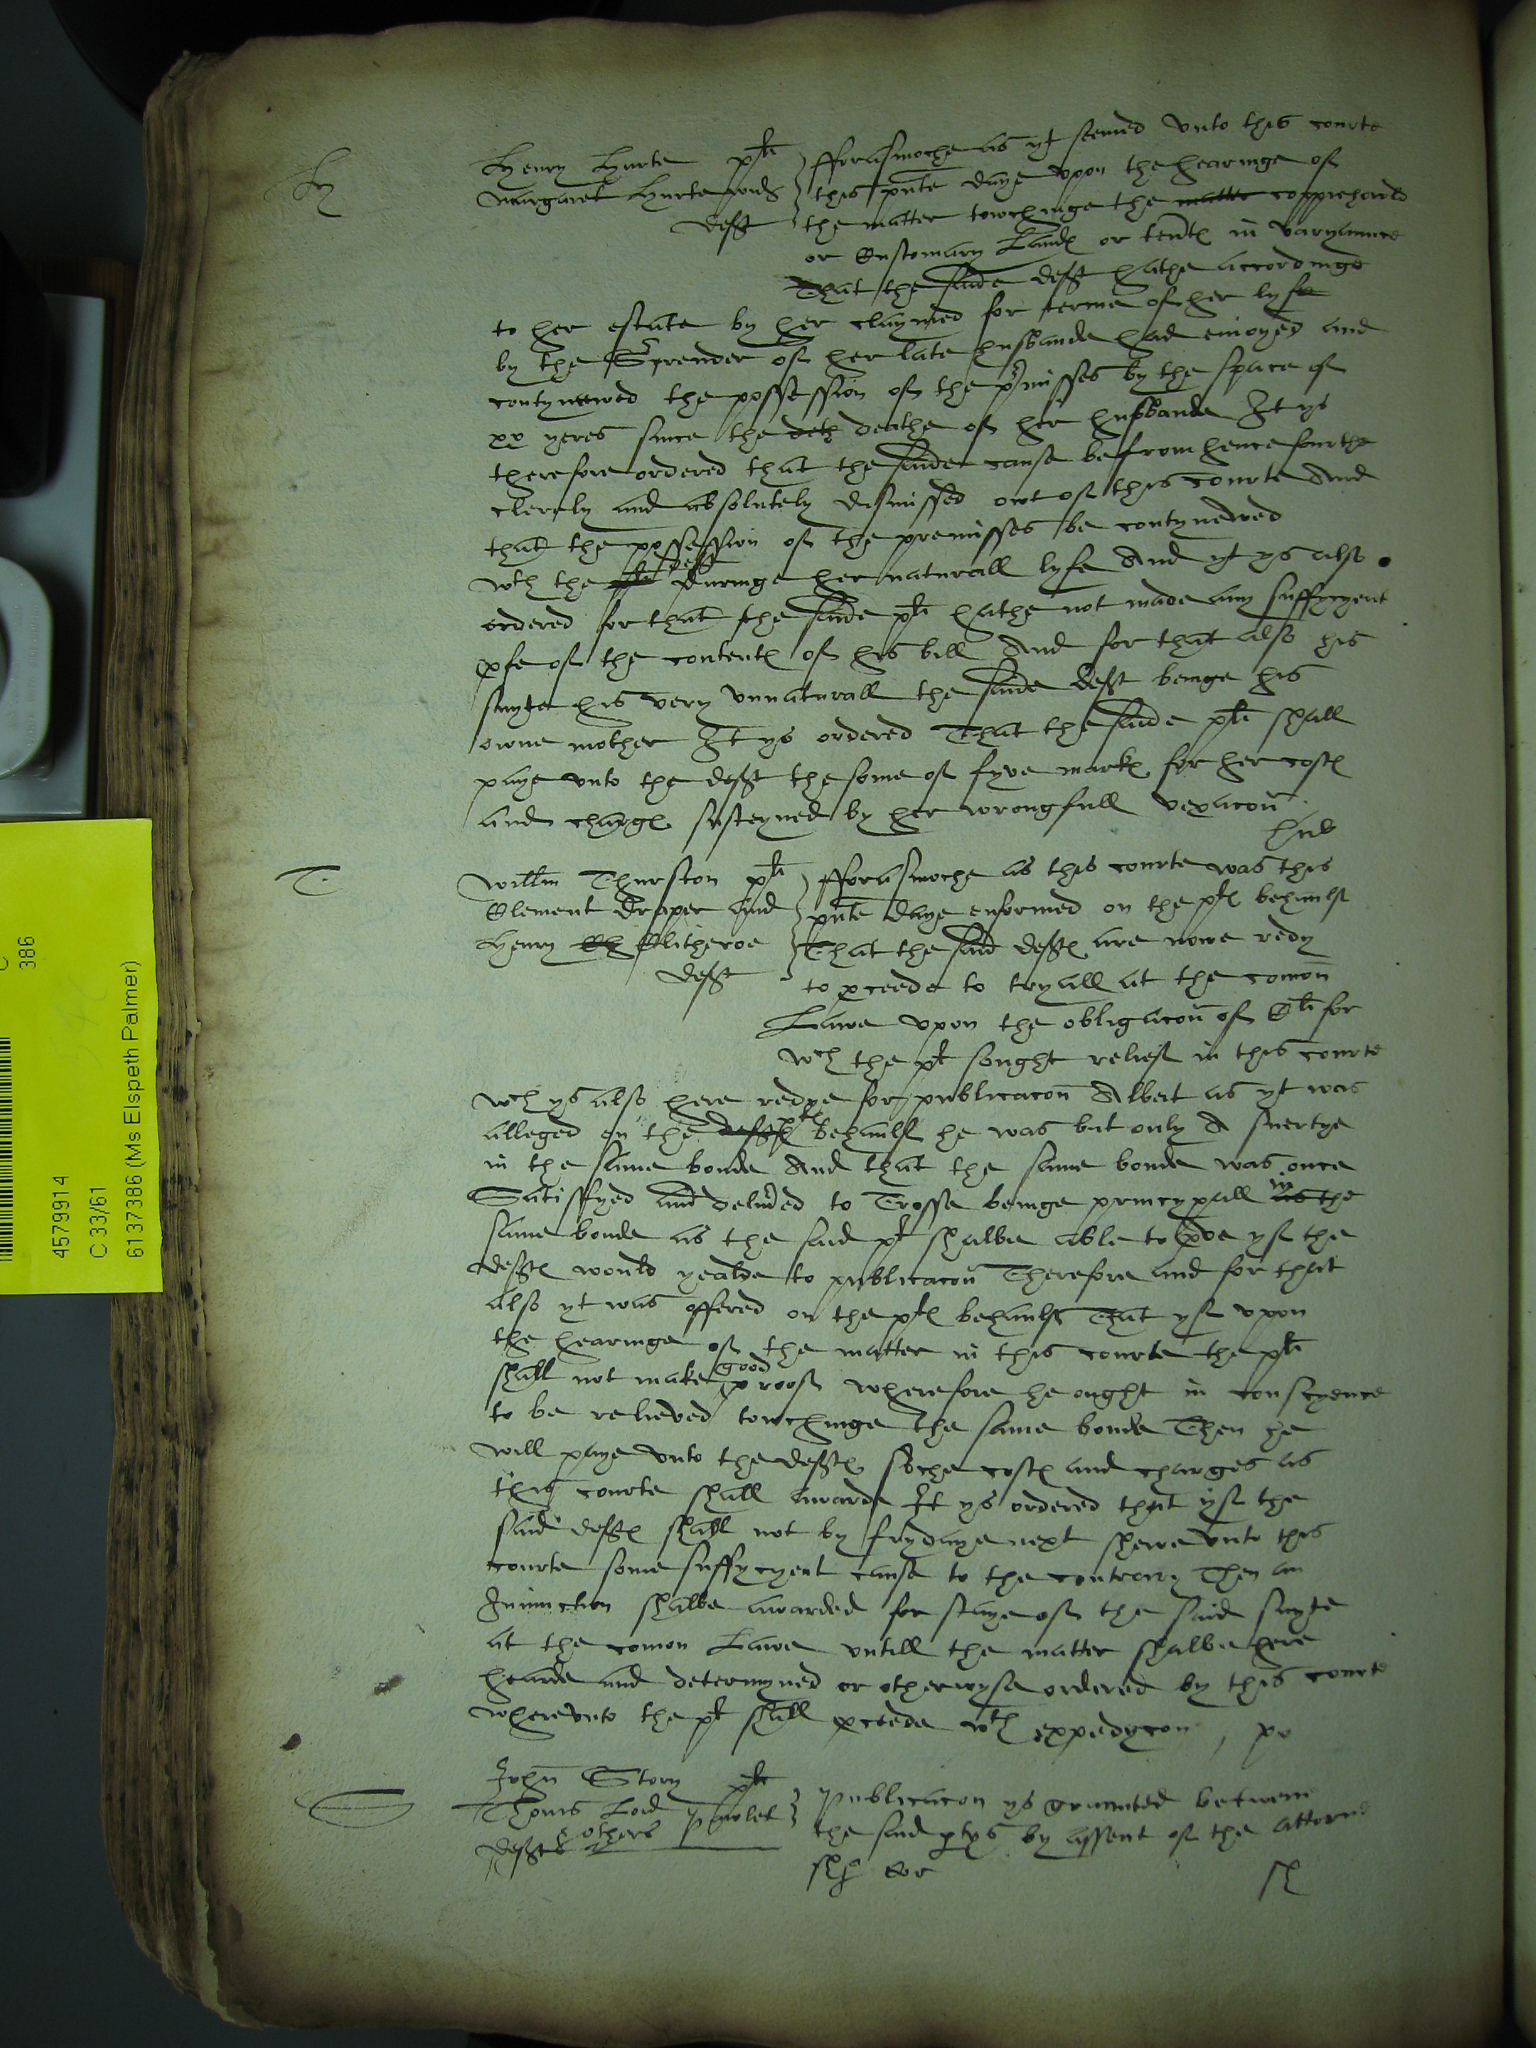 Henry Hurte plt fforasmoche as yt semed unto this courte
Margaret Hurte wid this pnte daye upon the hearinge of
deft the matter towchinge the matter coppiehould
or Customary Land or tent in varyaunce
That the saide deft hathe accordinge
to her estate by her claymed for terme of her lyfe
by the Surrender of her late husbande had enioyed and
contynewed the possession of the pmisses by the space of
xx yeres since the deth deathe of her husbande It ys
therefore ordered that the saide cause be from henceforthe
clerely and absolutely dismissed owt of this courte And
that the possession of the premisses be contynewed
wth the deft duringe her naturall lyfe And yt ys also
ordered for that the saide plt hathe not made any suffycyent
pfe of the content of his bill And for that also his
suyte his very unnaturall the saide deft beinge his
owne mother It ys ordered That the saide plt shall
paye unto the deft the some of fyve mark for her cost
and charg susteyned by her wrongfull vexacon
Willm Thurston plt fforasmoche as this courte was this
Clement Draper and pnte daye enformed on the plt behaulf
Henry Ch Clitheroe That the said deft are nowe redy
deft to pceede to tryall at the comon
Lawe upon the obligacon of Cli for
wch the plt sought relief in this courte
wch ys also here redye for publicacon Albeit as yt was
plt
alleged on the deft behaulf he was but only A suertye
in the same bonde And that the same bonde was once
in
Satisfyed and delived to Trosse beinge pryncypall as the
same bonde as the said plt shalbe able to pve yf the
deft would yealde to publicacon Therefore and for that
also yt was offered on the plt behaulf That yf upon
the hearinge of the matter in this courte the plt
good
shall not make proof wherefore he ought in conscyence
to be relieved towchinge the same bonde Then he
will paye unto the deft soche cost and charges as
this courte shall awarde It ys ordered that yf the
said deft shall not by frydaye next shewe unto this
courte some suffycyent cause to the contrary Then an
Iniunction shalbe awarded for staye of the said suyte
at the comon Lawe untill the matter shalbe here
hearde and determyned or otherwyse ordered by this courte
whereunto the plt shall pceede wth expedycon
John Story plt publicacon ys graunted betwene
Thoms Lord Pawlet the said ptys by assent of the attorn
& others
defts
4579914
C 33/61
386
6137386 (Ms Elspeth Palmer)